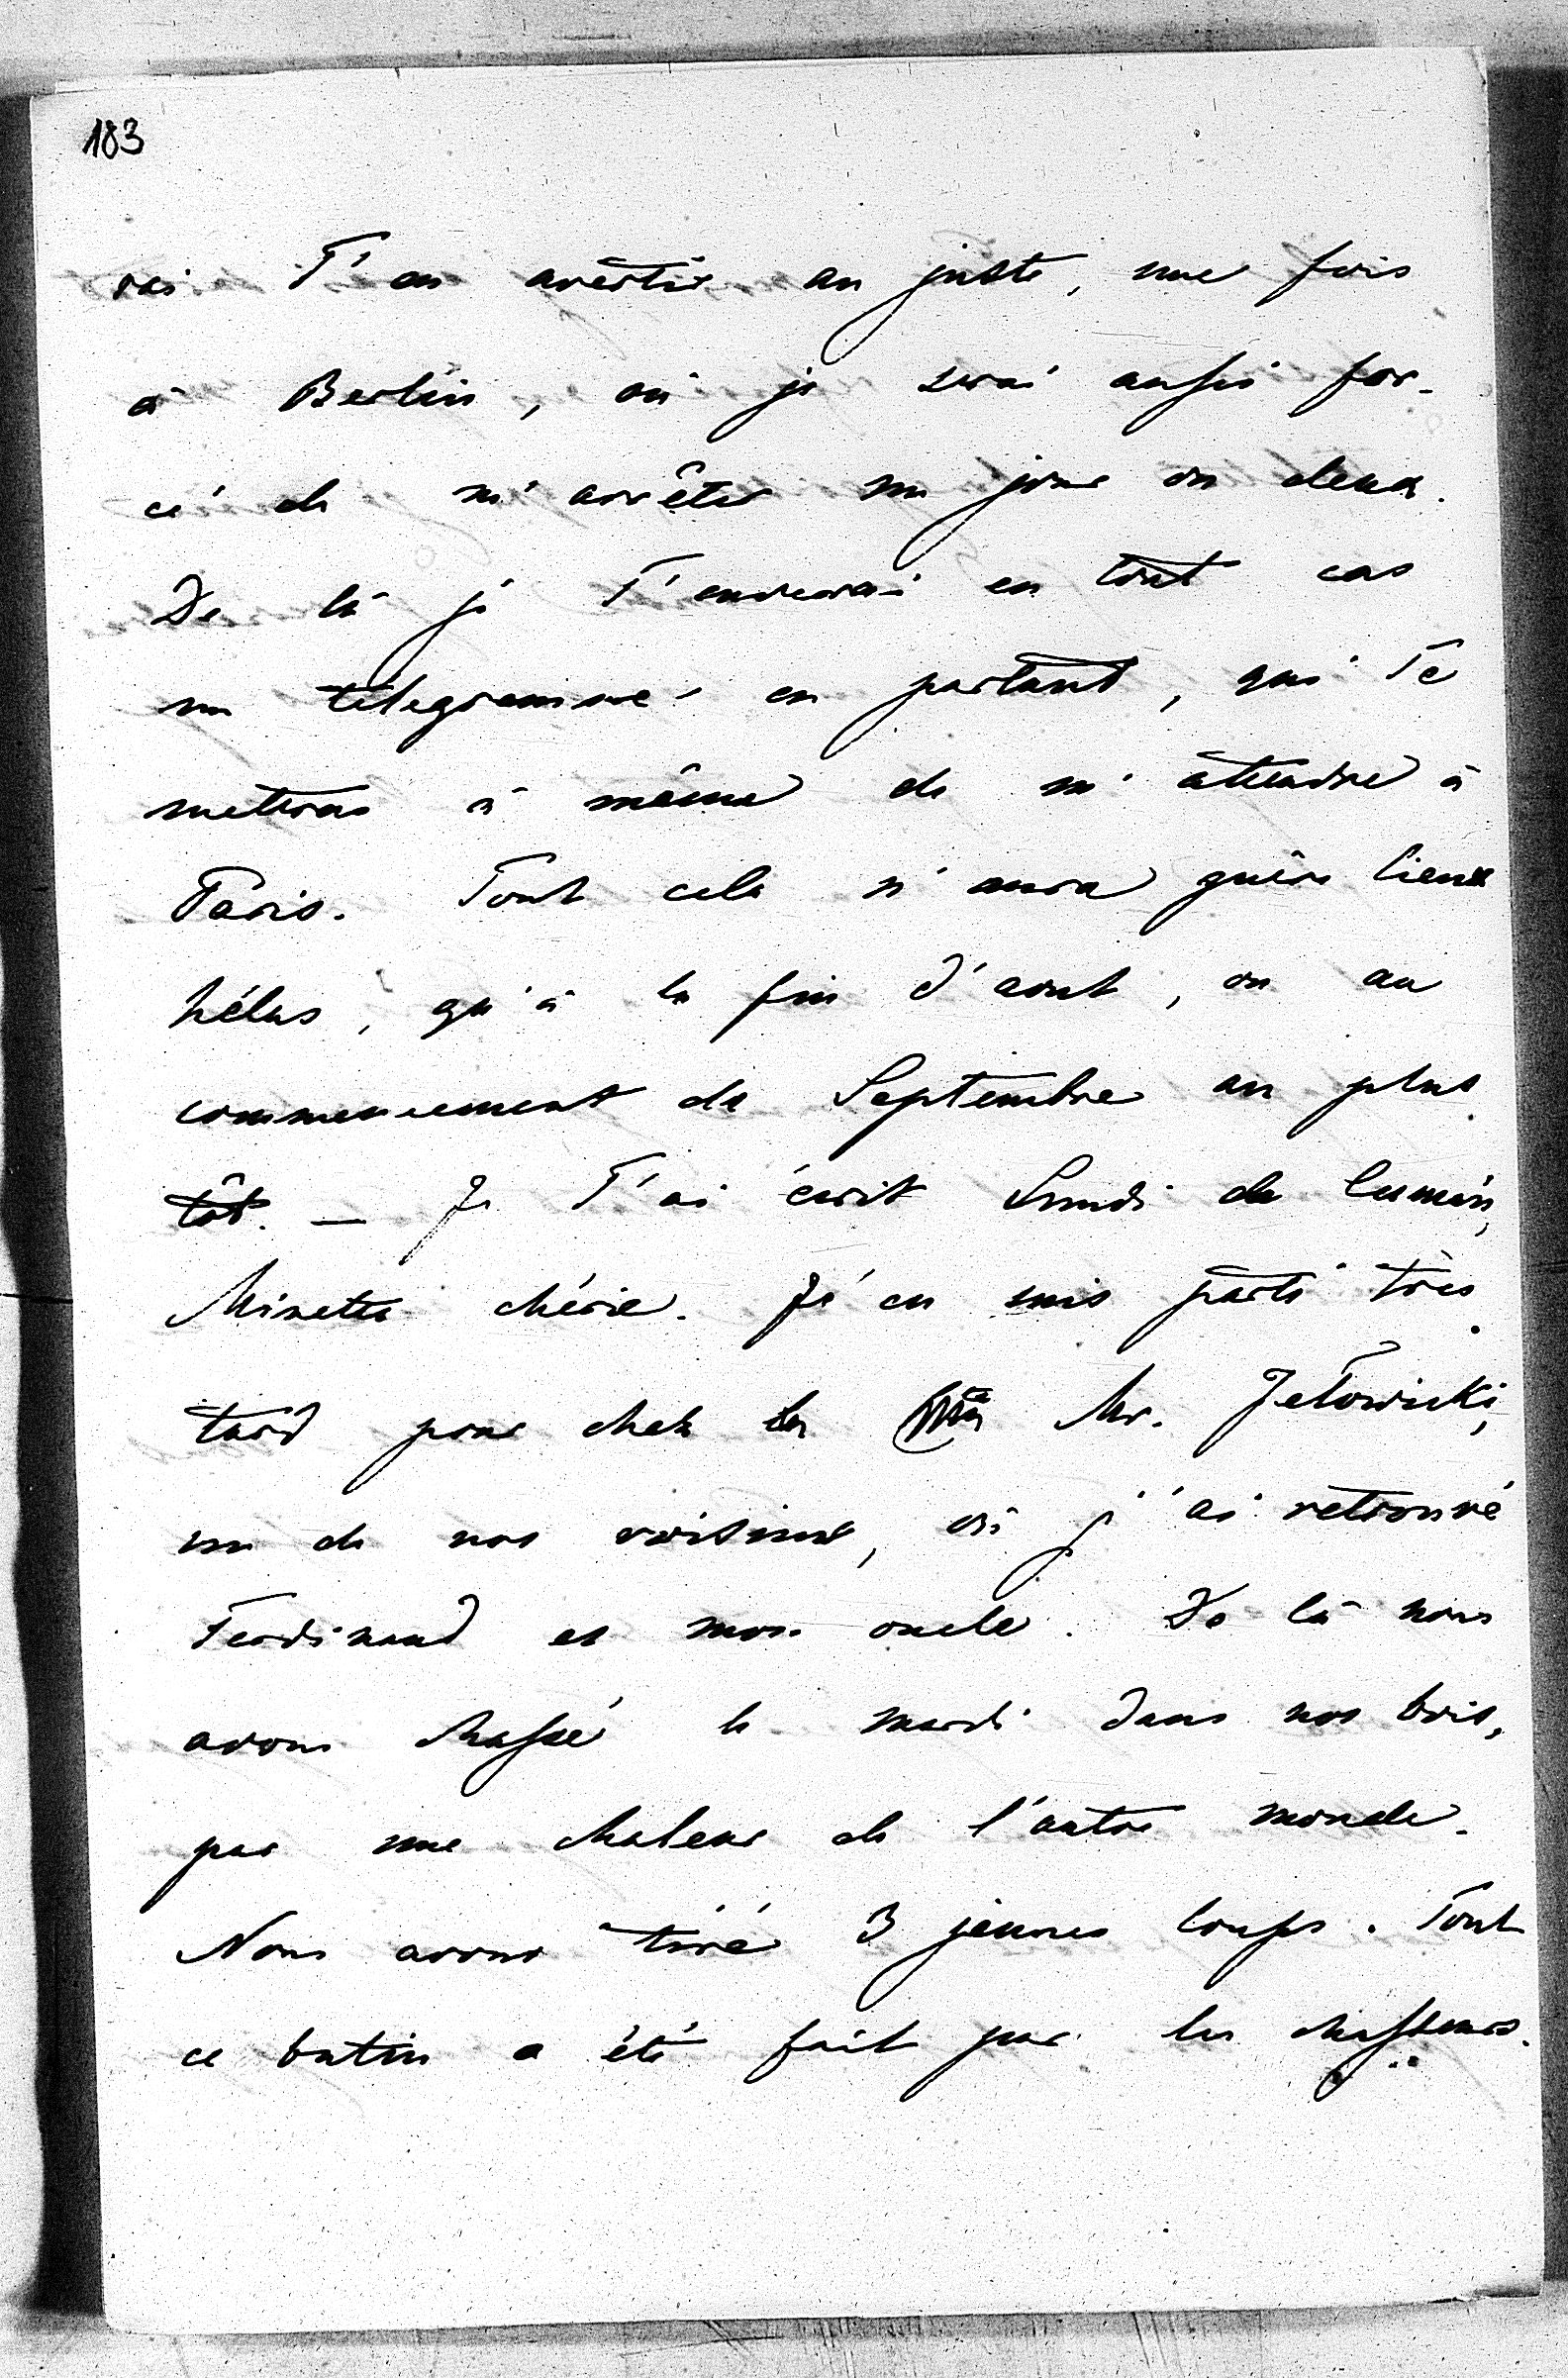 183
rai T'en avertir au juste, une fois
à Berlin, où je serai aussi for-
cé de m'arrêter un jour ou deux.
De là je T'enverrai en tout cas
un télegramme en partant, qui Te
mettras à même de m'attendre à
Paris. Tout cela n'aura guère lieu
hélas, qu'à la fin d'aout, ou au
commencement de Septembre au plus
tôt. — Je T'ai écrit Lundi de
Minette chérie. J'en suis parti très
tard pour chez Mr. Jełowicki,
un de nos voisins, où j'ai retrouvé
Ferdinand et mon oncle. De là nous
avons chassé le mardi dans nos bois,
par une chaleur de l'autre monde.
Nous avons tiré 3 jeunes loups. Tout
ce butin a été fait par les chasseurs.